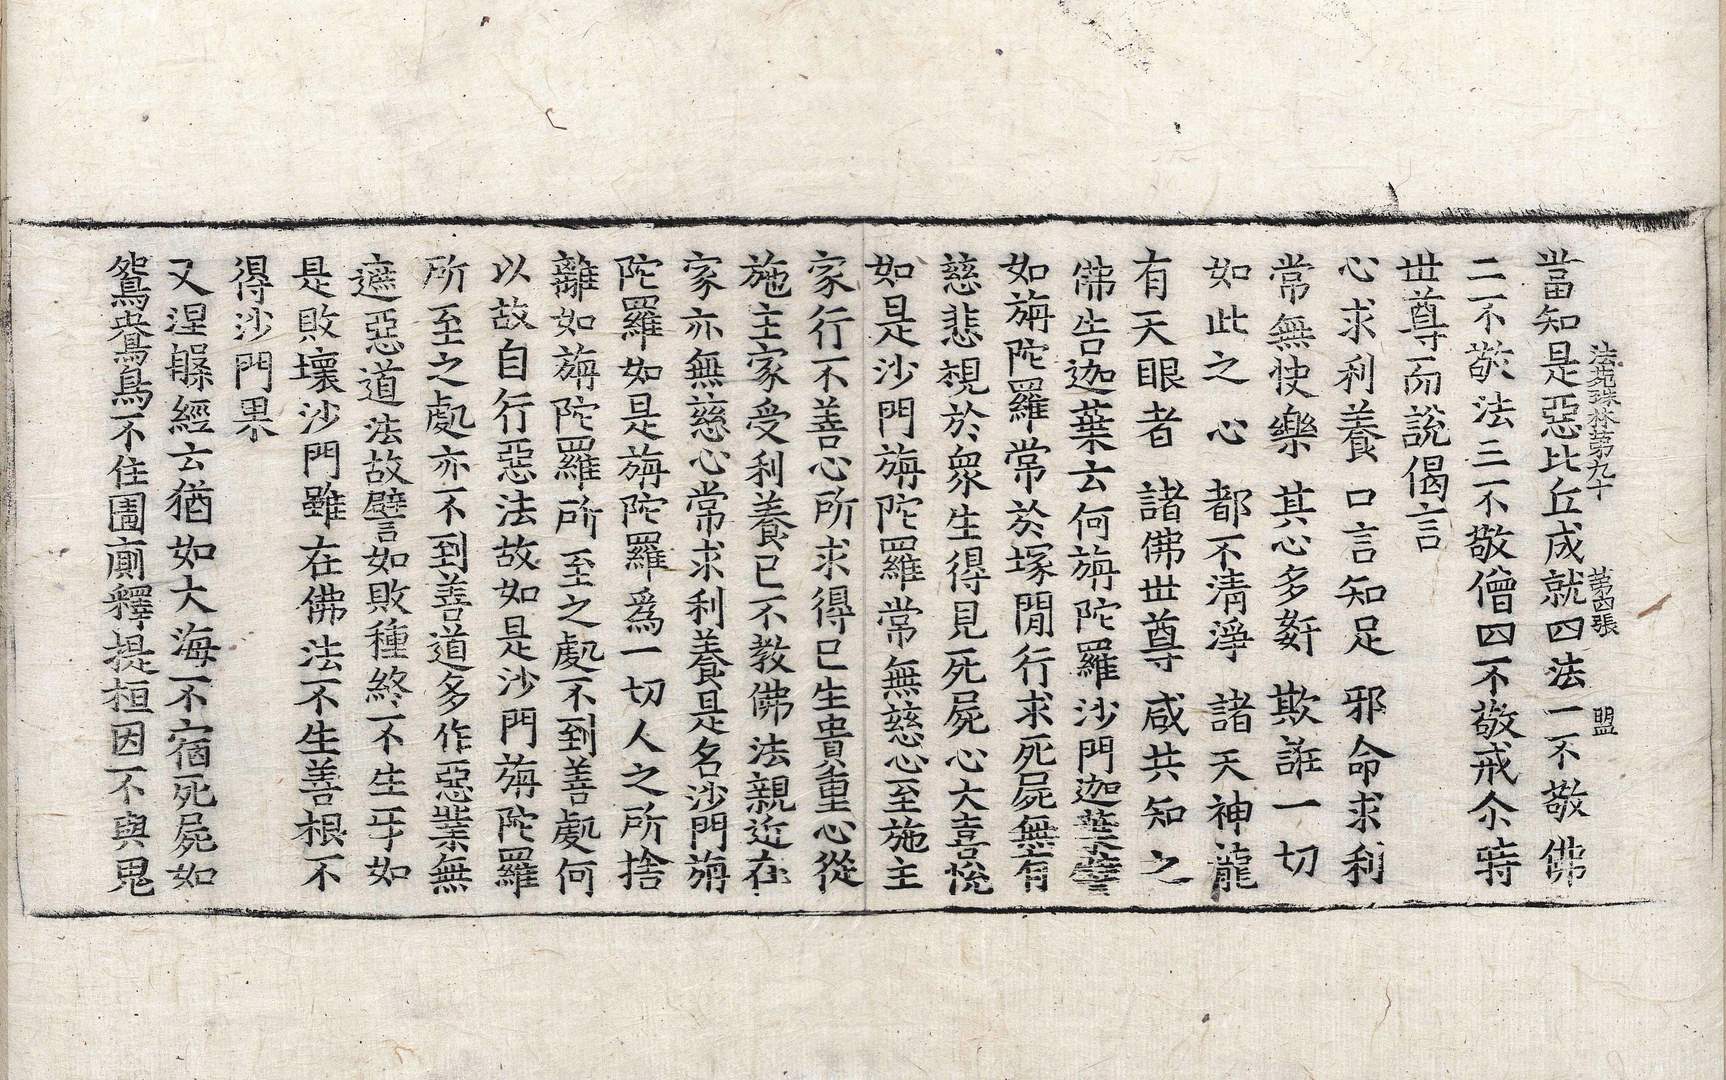 法苑珠林第九十　第四張　盟
當知是惡比丘成就四法一不敬佛
二不敬法三不敬僧四不敬戒尒時
世尊而說偈言
心求利養　口言知足　邪命求利
常無快樂　其心多姧　欺誑一切
如此之心　都不清淨　諸天神龍
有天眼者　諸佛世尊　咸共知之
佛告迦葉云何旃陀羅沙門迦葉譬
如旃陀羅常於塚間行求死屍無有
慈悲視於衆生得見死屍心大喜悅
如是沙門旃陀羅常無慈心至施主
家行不善心所求得已生貴重心從
施主家受利養已不教佛法親近在
家亦無慈心常求利養是名沙門旃
陀羅如是旃陀羅爲一切人之所捨
離如旃陀羅所至之處不到善處何
以故自行惡法故如是沙門旃陀羅
所至之處亦不到善道多作惡業無
遮惡道法故譬如敗種終不生牙如
是敗壞沙門雖在佛法不生善根不
得沙門果
又涅槃經云猶如大海不宿死屍如
鴛鴦鳥不住圊廁釋提桓因不與鬼